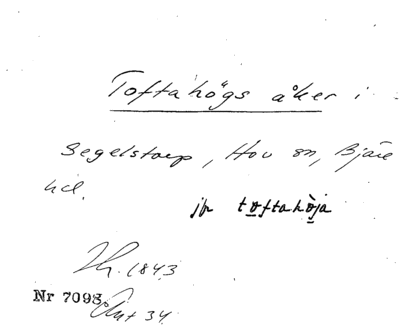 Toftahögs åker i
Segelstorp, Hov sn, Bjäre
hd.
jfr toftahòja
Th. 1843
Nr 7098 Ant 34